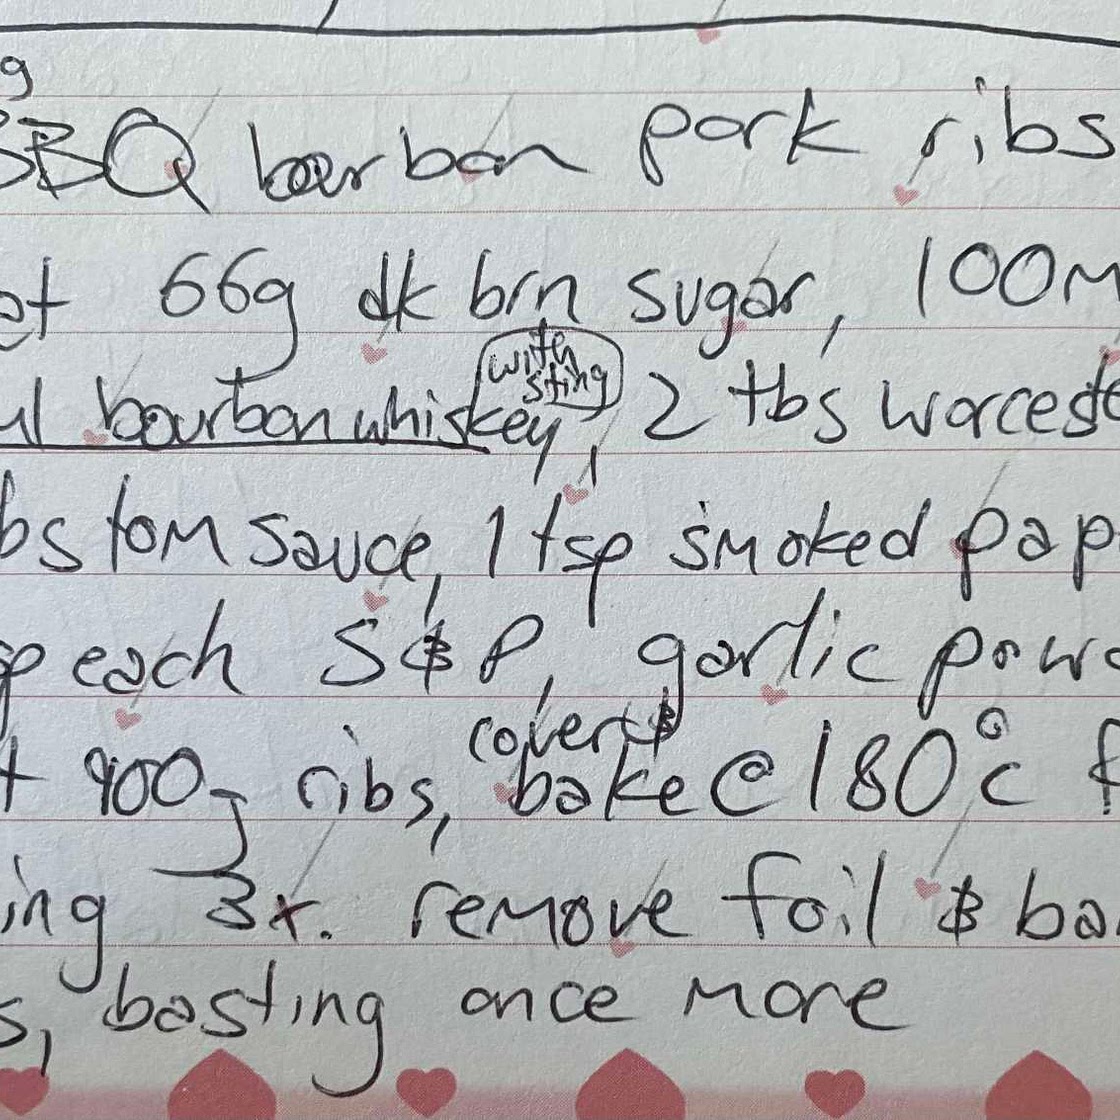 g
BBQ bourbon pork ribs
et 66g dk brn sugar, 100m
with
sting
ul bourbon whiskey, 2 tbs worcest
bs tom sauce, 1 tsp smoked pap
p each S & P, garlic powd
cover &
t 900g ribs, bake @ 180°c f
ing 3x. remove foil & ba
s, basting once more